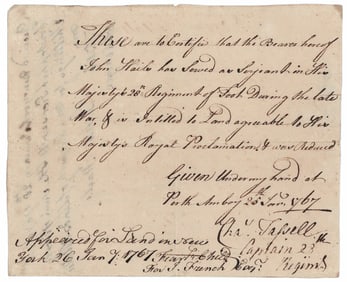 These are to Certifie that the Bearer hereof
John Haile has Served as Serjeant in His
Majesty's 28th Regiment of Foot During the late
War, & is Intitled to Land agreeable to His
Majesty's Royal Proclamation & was Reduced
Given Under my hand at
Perth Amboy 25th Jany. 1767
Cha. Tassell
Captain 28th
Regimt
Approved for Land in New
York 26 Jany. 1767.
For J. French